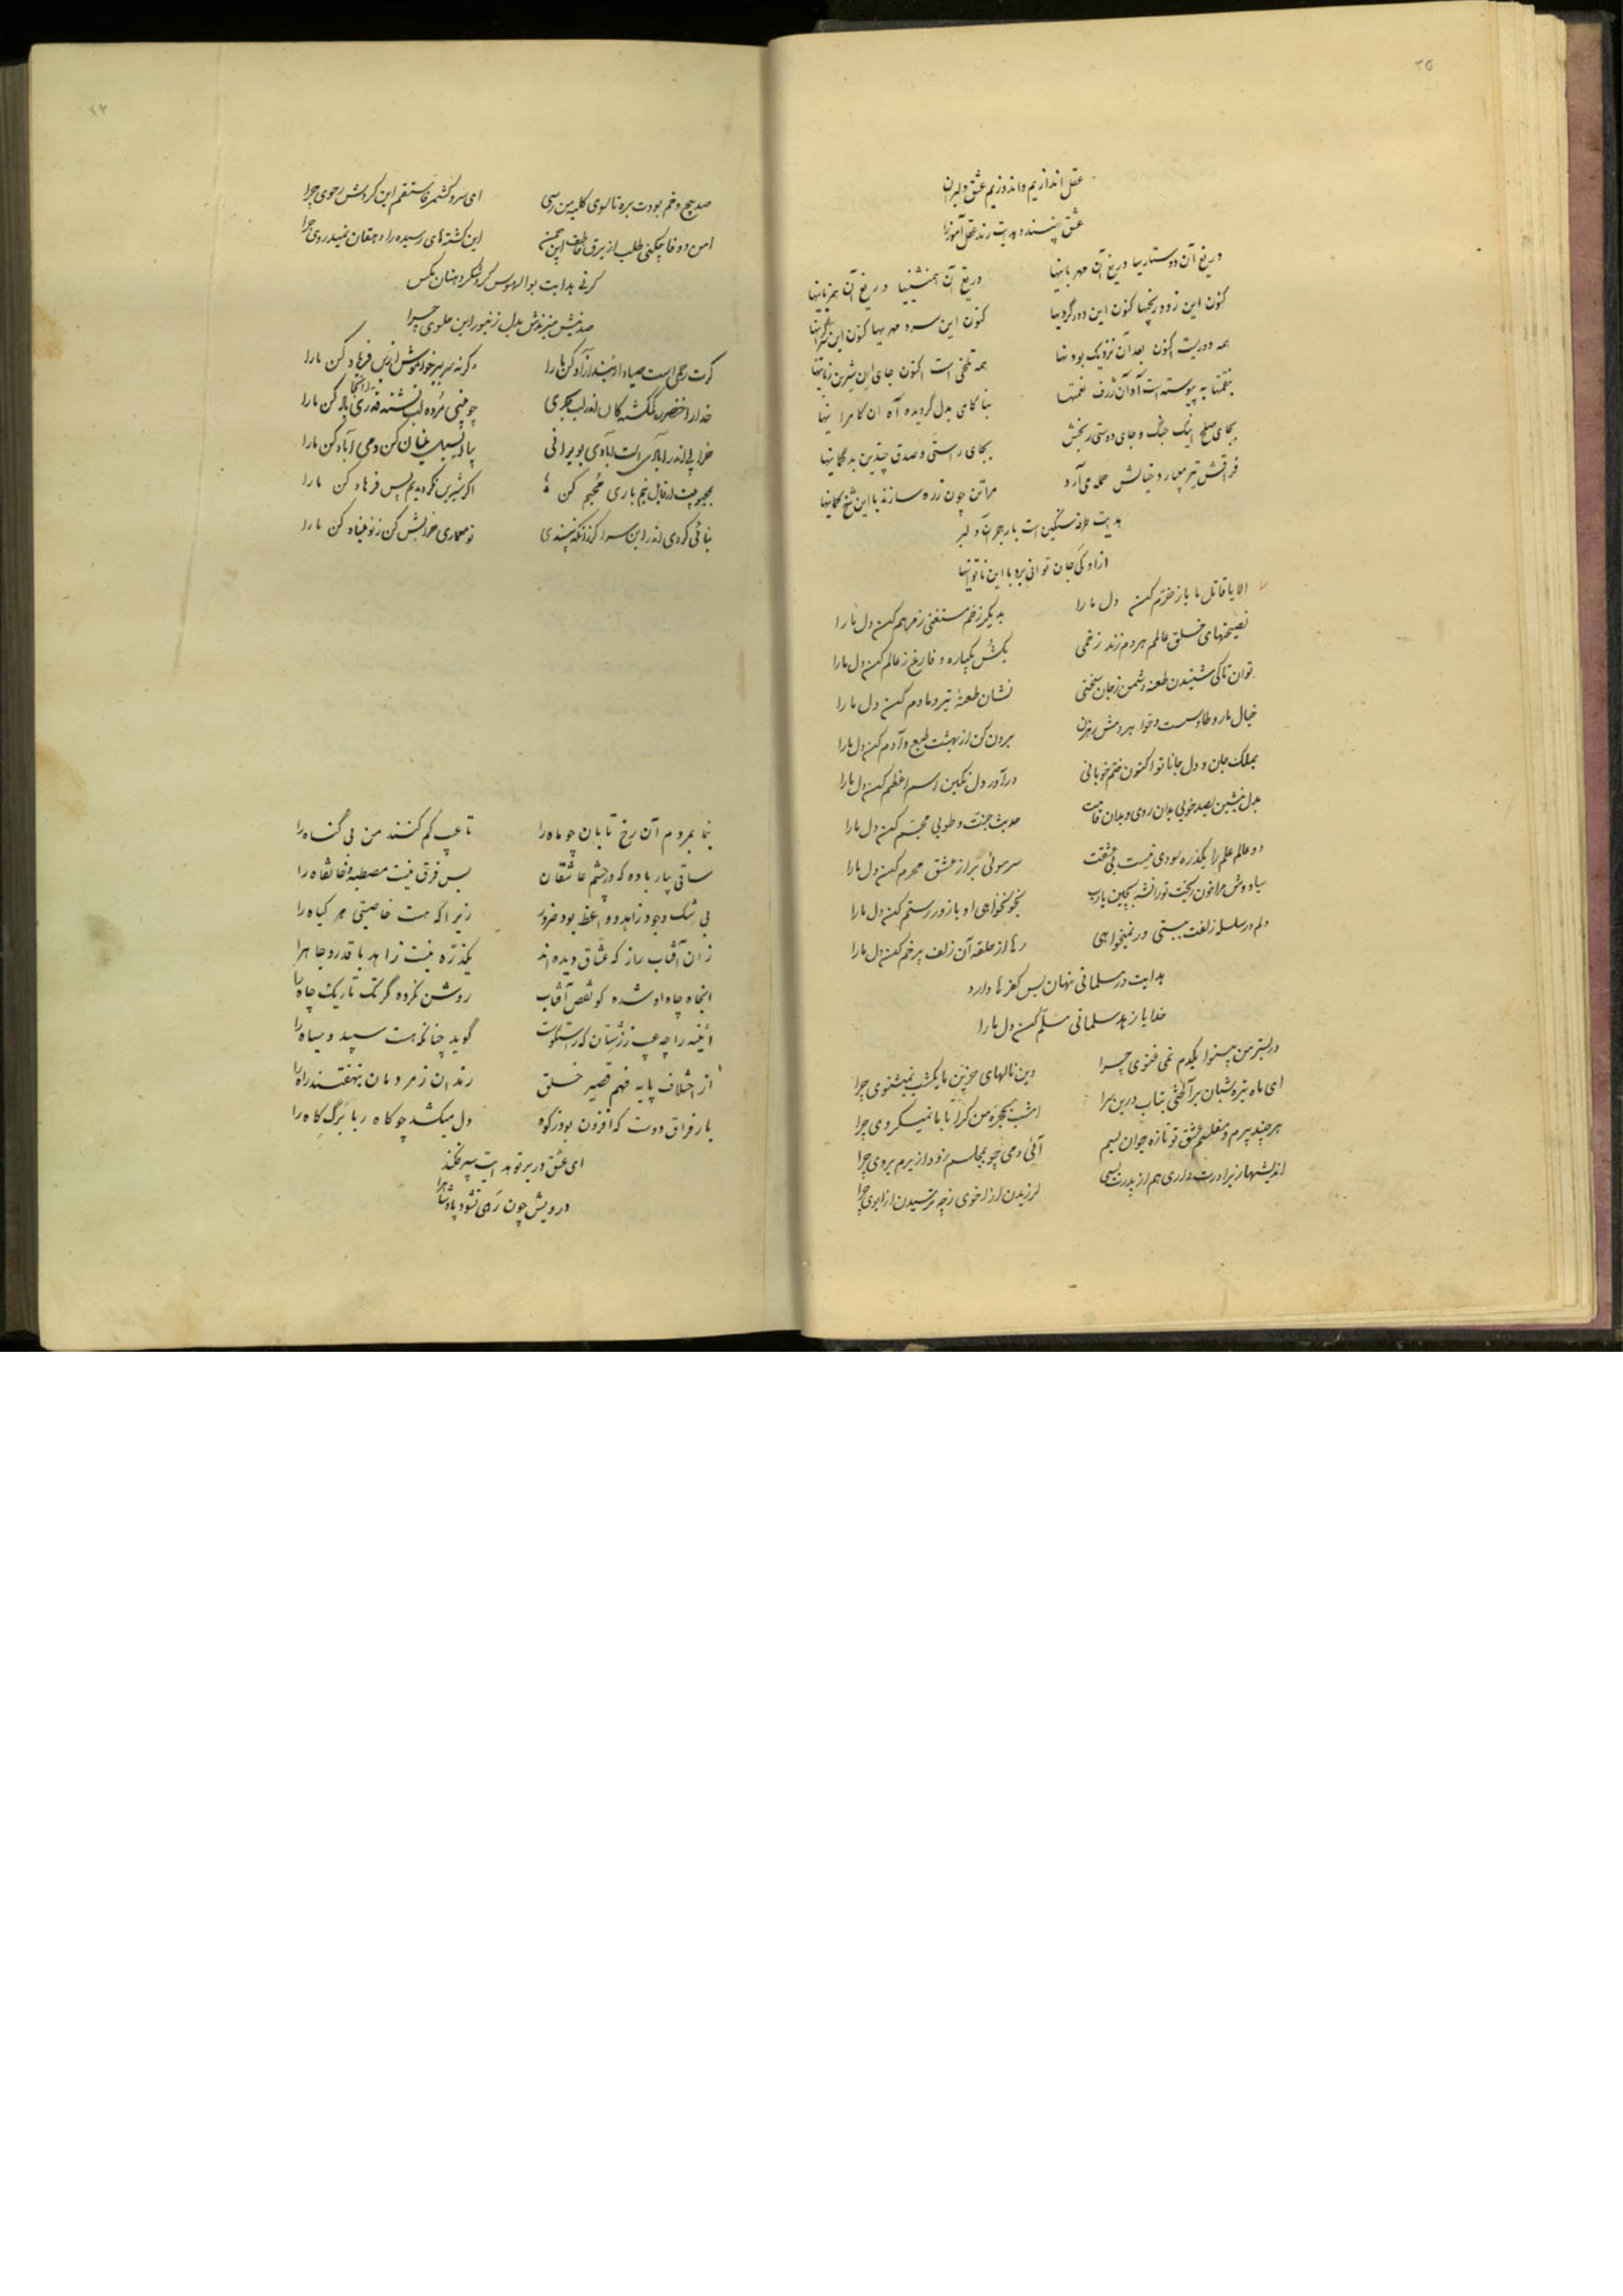 ۲۵
عقل اندازیم و اندوزیم عشق دلبران
عشق پسندد هدایت رند عقل آموز را
دریغ آن دوستاریها دریغ آن مهربانیها دریغ آن همنشینیها دریغ آن همزبانیها
کنون این زود رنجیها کنون این دورگردیها کنون این سرد مهریها کنون این
همه دوریست اکنون بعد آن نزدیک بودنها همه تلخی است اکنون جای این شیرین زبانیها
بنقمتها به پیوسته است آه آن ژرف نعمتها بناکامی بدل گردیده آه آن کامرانیها
بجای صلح اینک جنگ و جای دوستی رنجش بجای راستی و صدق چندین بدگمانیها
فراقش تیر میبارد خیالش حمله می‌آرد مرا تن چون زره سازند با این شخ کمانیها
هدایت طرفه سنگین است بار هجر آن دلبر
جان توانی برد با این ناتوانیها
الا یا قاتل ما باز خرم کن دل ما را بدیگر زخم مستغنی ز مرهم کن دل ما را
نصیحتهای خلق عالمم هر دم زند زخمی بکش یکباره و فارغ ز عالم کن دل ما را
توان تا کی شنیدن طعنه دشمن ز جان سختی نشان طعنهٔ تیر دمادم کن دل ما را
خیال مار و طاوست و حوا هر دمش رهزن برون کن از بهشت طبع و آدم کن دل ما را
بملک جان و دل جانا تو اکنون ختم خوبانی درآور دل نگین اسم اعظم کن دل ما را
بدل بنشین بصد خوبی بدان روی و بدان قامت حدیث جنت و طوبی مجسم کن دل ما را
دو عالم علم را یکذره سودی نیست بی عشقت سر موئی بر از عشق محرم کن دل ما را
سیاووش مرا خون ریخت تور افشهٔ یارب بخونخواهی او بازور رستم کن دل ما را
دلم در سلسله زلفت ببستی ور نمیخواهی رها از حلقه آن زلف پر خم کن دل ما را
هدایت در مسلمانی نهان بس کفرها دارد
خدایا زهد سلمانی مسلم کن دل ما را
در بستر من بینوا یکدم نمی غنوی چرا وین نالهای حزین ما یکشب نمیشنوی چرا
ای ماه تیره شبان برآ لختی بتاب درین سرا امشب بحجره من کرا با ما نمیگروی چرا
هر چند پیرم و مفلسم عشق تو تازه جوان بسم آئی دمی چو بمجلسم زود از برم بروی چرا
اندیشها ز برادرت داری هم از پدرت بسی لرزیدن از اخوی ز چه ترسیدن از ابوی چرا
۲۶
صد پیچ و خم بودت بره تا سوی کلبه من رسی ای سرو کشمر قامتم این کردش رحوی چرا
امن و وفا چکنی طلب از برق خاطف این چمن این کشته‌های رسیده را دهقان نمیدروی چرا
کرنی هدایت بوالهوس گرد شکر دهنان مگس
صد نیش میزندش بدل زنبور این حلوی چرا
گرت رحمی است صیاد از بند آزاد کن ما را وگرنه سر ببر خواموش از فریاد کن ما را
خدا را خضر ره گمگشتگان اندر لب چو بینی مرده لب تشنه قدری یاد کن ما را
خرابی اندر آبادی است آبادی بویرانی بیا و سیل طغیان کن دمی آباد کن ما را
بمحبوبیت ار قابل نیم باری محبم کن اگر شیرین نگردیدیم پس فرهاد کن ما را
بنائی کردی اندر این سرا گر زانکه نپسندی تو معماری خرابش کن ز نو بنیاد کن ما را
بنما بمردم آن رخ تابان چو ماه را تا عیب کم کنند من بی گناه را
ساقی بیار باده که در چشم عاشقان بس فرق نیست مصطبه و خانقاه را
بی شک وجود زاهد و واعظ بود ضرور زیرا که هست خاصیتی هر گیاه را
زان آفتاب راز که عشاق دیده‌اند یکذره نیست زاهد با قدر و جاه را
اینجاه چاه او شده کو نقص آفتاب روشن نکرده گر تک تاریک چاه را
آئینه را چه عیب ز زشتان که راستگوست گوید چنانکه هست سپید و سیاه را
از اختلاف پایه فهم قصیر خلق رندان ز مردمان بنهفتند راه را
بار فراق دوست که افزون بود ز کوه دل میکشد چو کاه ربا برگ کاه را
ای عشق در بر تو هدایت سپر فکند
درویش چون رهی نشود پادشاه را